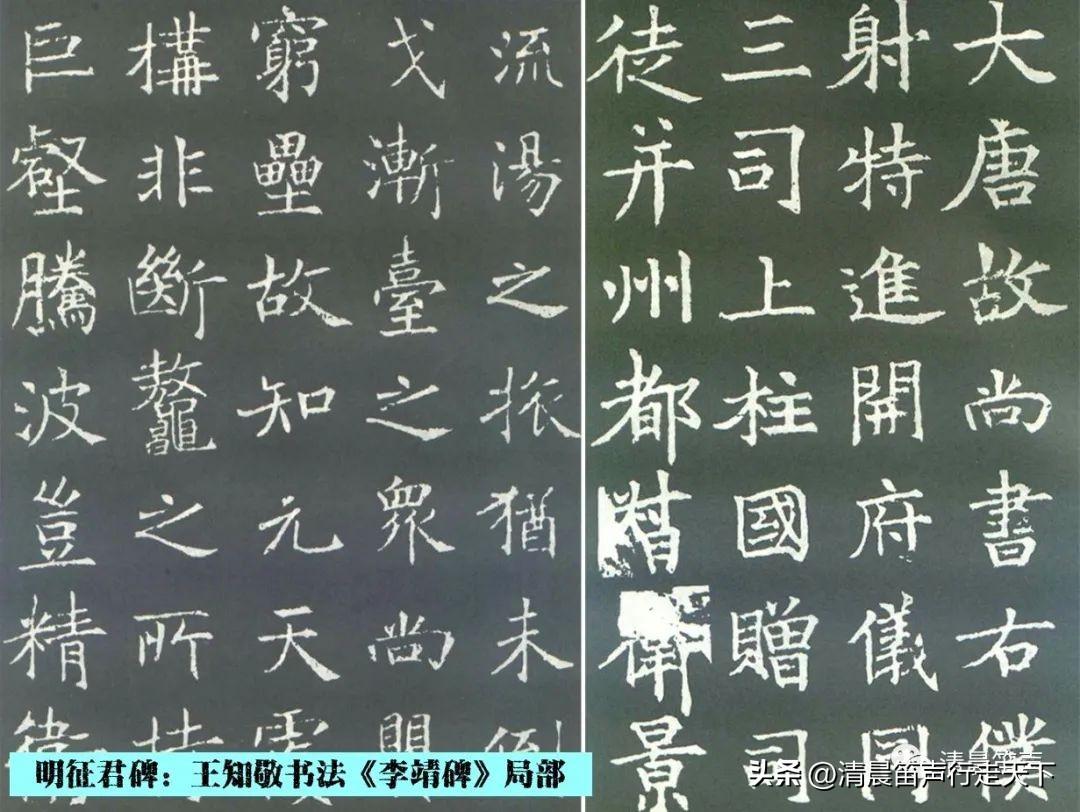 大唐故尚書右僕
射特進開府儀同
三司上柱國贈司
徒并州都督衛景
流湯之振猶未倒
戈漸臺之眾尚
窮壘故知元天
構非斷鼇之所持
巨壑騰波豈精
明征君碑：王知敬书法《李靖碑》局部
清晨笛声
头条 @清晨笛声行走天下